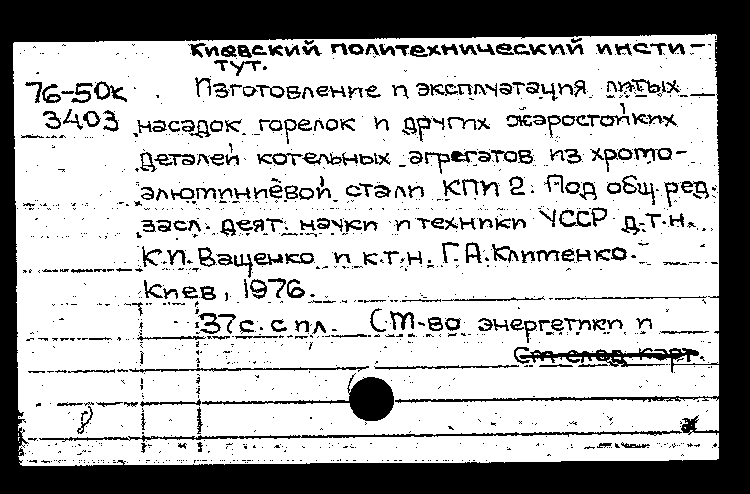 Киевский политехнический инсти-
тут.
76-50к
Изготовление и эксплуатация литых
3403
насадок горелок и других жаростойких
деталей котельных агрегатов из хромо-
алюминиевой стали КПИ 2. Под общ. ред.
засл. деят. науки и техники УССР д.т.н.
К.И. Ващенко и к.т.н. Г.А. Клименко.
Киев, 1976.
37 с. с ил. (М-во энергетики и
См. след. карт.
8